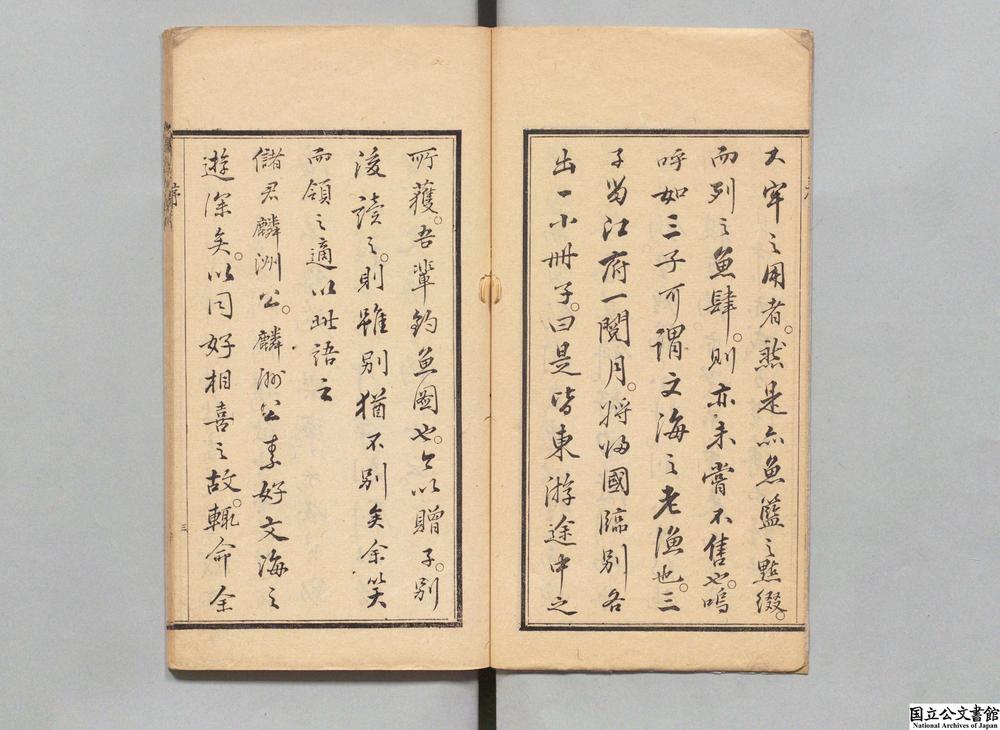 大宰之用者。然是亦魚籃之點綴。
而列之魚肆。則亦未嘗不售也。嗚
呼如三子可謂文海之老漁也。三
子留江府一閱月。將歸國臨別各
出一小冊子。曰是皆東游途中之
所獲。吾輩釣魚圖也。今以贈子。別
後讀之。則雖別猶不別矣余笑
而領之適以此語云
儲君麟洲公。麟洲公素好文海之
遊深矣。以同好相喜之故。輒命余
序
三
国立公文書館
National Archives of Japan